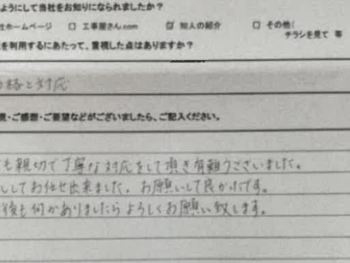 ようにして当社をお知りになられましたか?
社ホームページ □ 工事屋さん.com ☑ 知人の紹介 □ その他(
チラシを見て 等
を利用するにあたって、重視した点はありますか?
価格と対応
見・ご感想・ご要望などがございましたら、ご記入ください。
も親切で丁寧な対応をして頂き有難うございました。
心してお任せ出来ました。お願いして良かったです。
後も何かありましたらよろしくお願い致します。